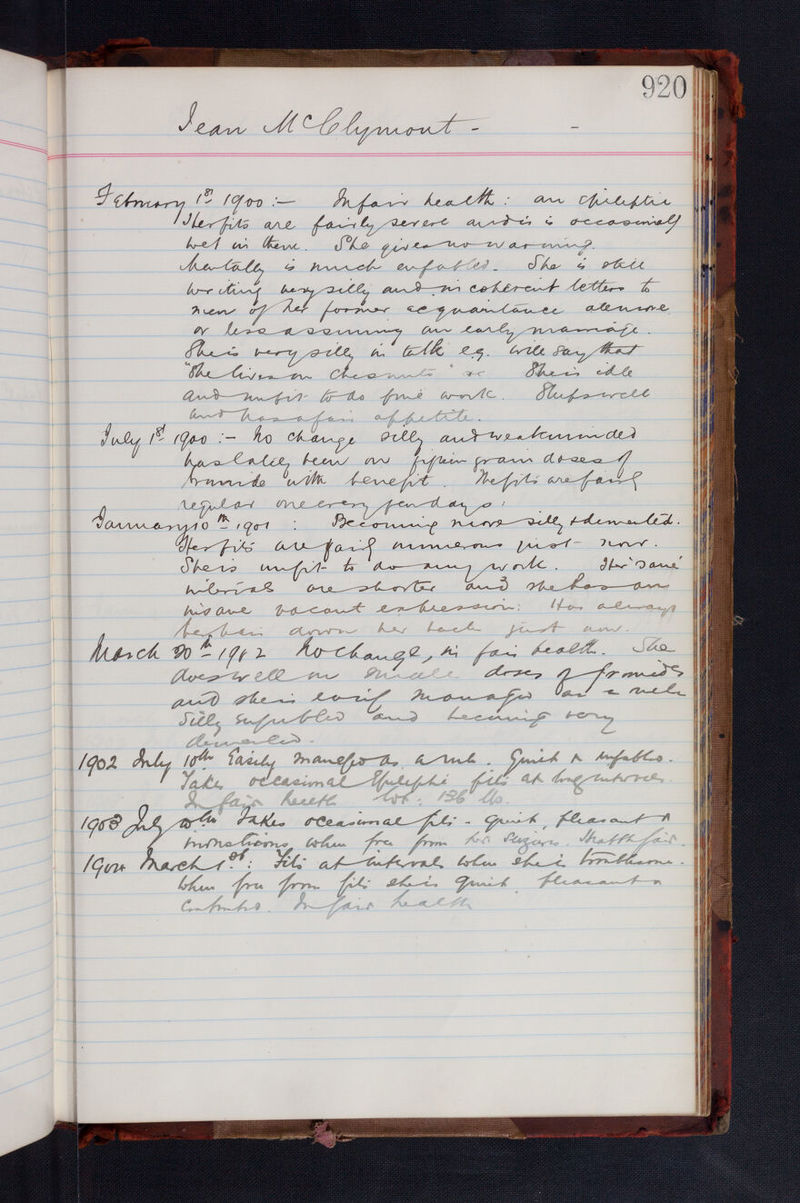 920
Jean McClymont -
February 1st 1900 :- In fair health : an epileptic
Her fits are fairly severe and is occasionally
wet in them. She gives no warning.
Mentally is much enfeebled. She is still
writing very silly and incoherent letters to
men of her former acquaintance all more
or less assuming an early marriage.
She is very silly in talk e.g. will say that
"She lives on chesnuts" &c She is idle
and unfit to do fine work. Sleeps well
and has a fair appetite.
July 1st 1900 :- No change silly and weakminded
has lately been on fifteen grain doses of
bromide with benefit. The fits are fairly
regular one every few days.
January 10th 1901 : Becoming more silly & demented.
Her fits are fairly numerous just now.
She is unfit to do any work. Her 'sane'
intervals are shorter and she has an
insane vacant expression: Has always
her hair down her back just now.
March 30th 1902 No change, in fair health. She
does well on small doses of bromides
and she is easily managed as a rule
Silly enfeebled and becoming very
demented.
1902 July 10th Easily managed as a rule. Quiet &
Takes occasional Epileptic fits at long intervals
In fair health Wt. 136 lbs.
1903 July Takes occasional fits - quiet pleasant &
industrious when free from her seizures. Health fair.
1904 March 1st: Fits at intervals when she is troublesome.
When free from fits she is quiet pleasant &
contented. In fair health